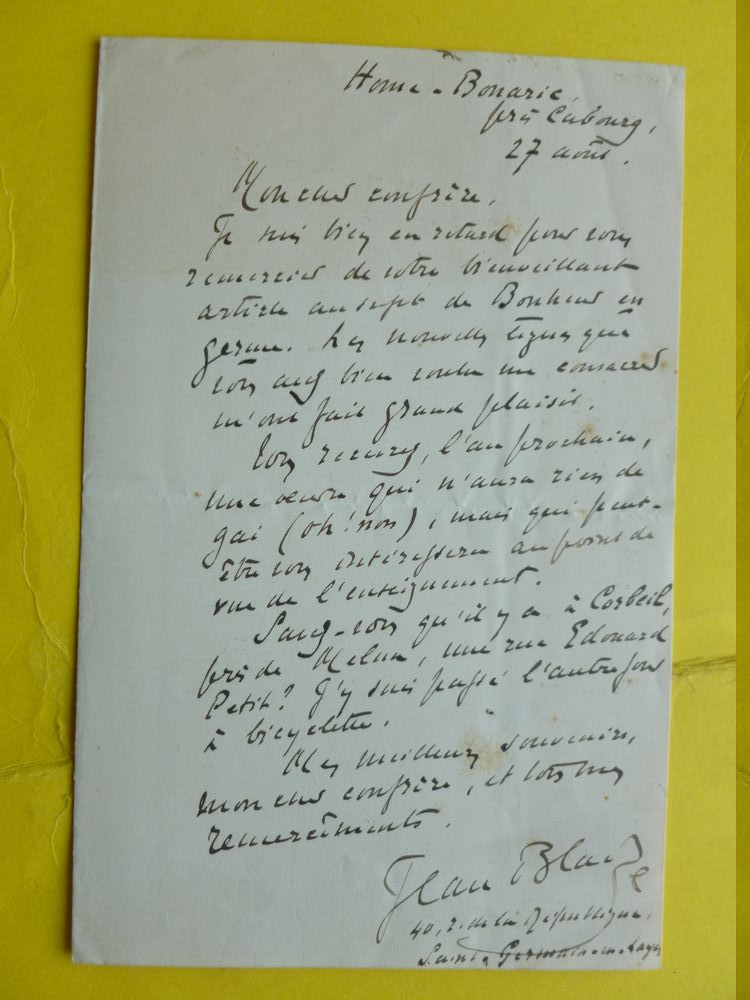 Home-Bonarie,
près Cabourg,
27 août.
Mon cher confrère,
Je suis bien en retard pour vous
remercier de votre bienveillant
article au sujet de Bonheur en
germe. Les nouvelles lignes que
vous avez bien voulu me consacrer
m'ont fait grand plaisir.
Vous recevrez, l'an prochain,
une œuvre qui n'aura rien de
gai (oh! non), mais qui peut-
être vous intéressera au point de
vue de l'enseignement.
Savez-vous qu'il y a à Corbeil,
près de Melun, une rue Edouard
Petit? J'y suis passé l'autre jour
à bicyclette.
Mes meilleurs souvenirs,
mon cher confrère, et tous mes
remerciments.
Jean Blaize
40, r. de la République,
Saint-Germain-en-Laye